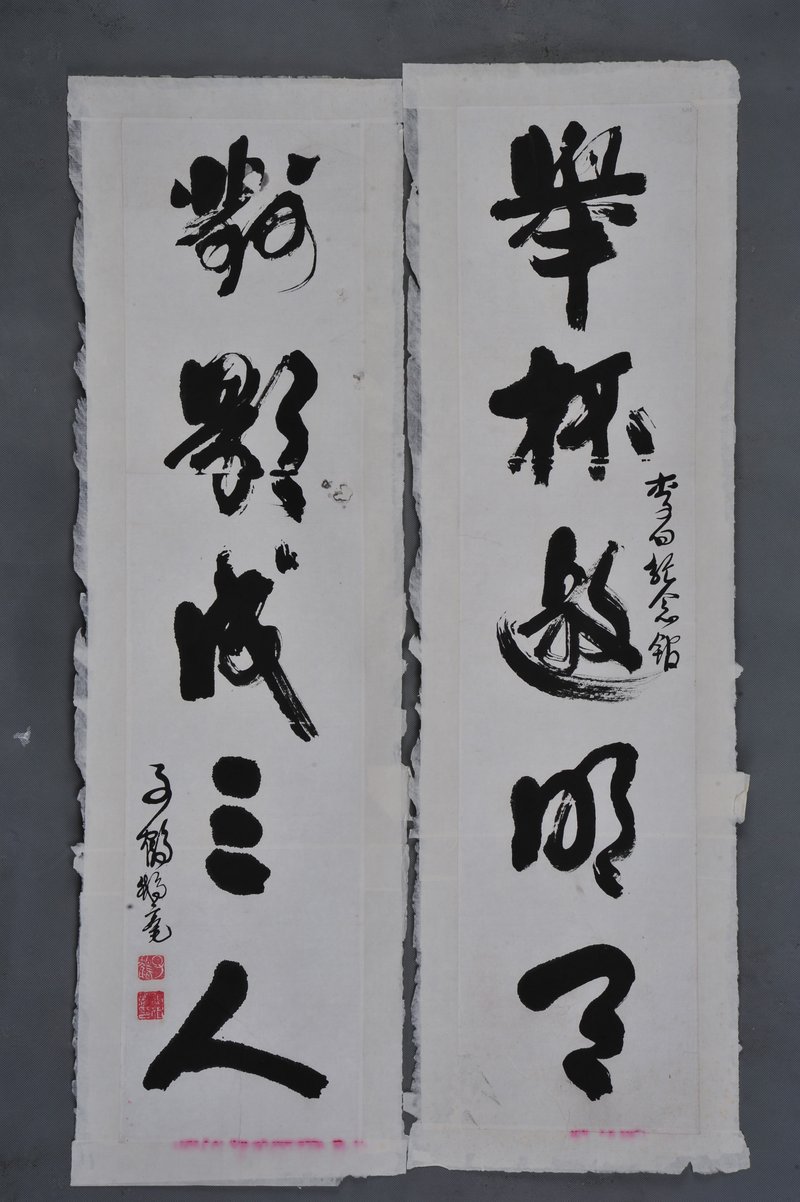 舉杯邀明月
李白紀念館
對影成三人
子鶴揚毫